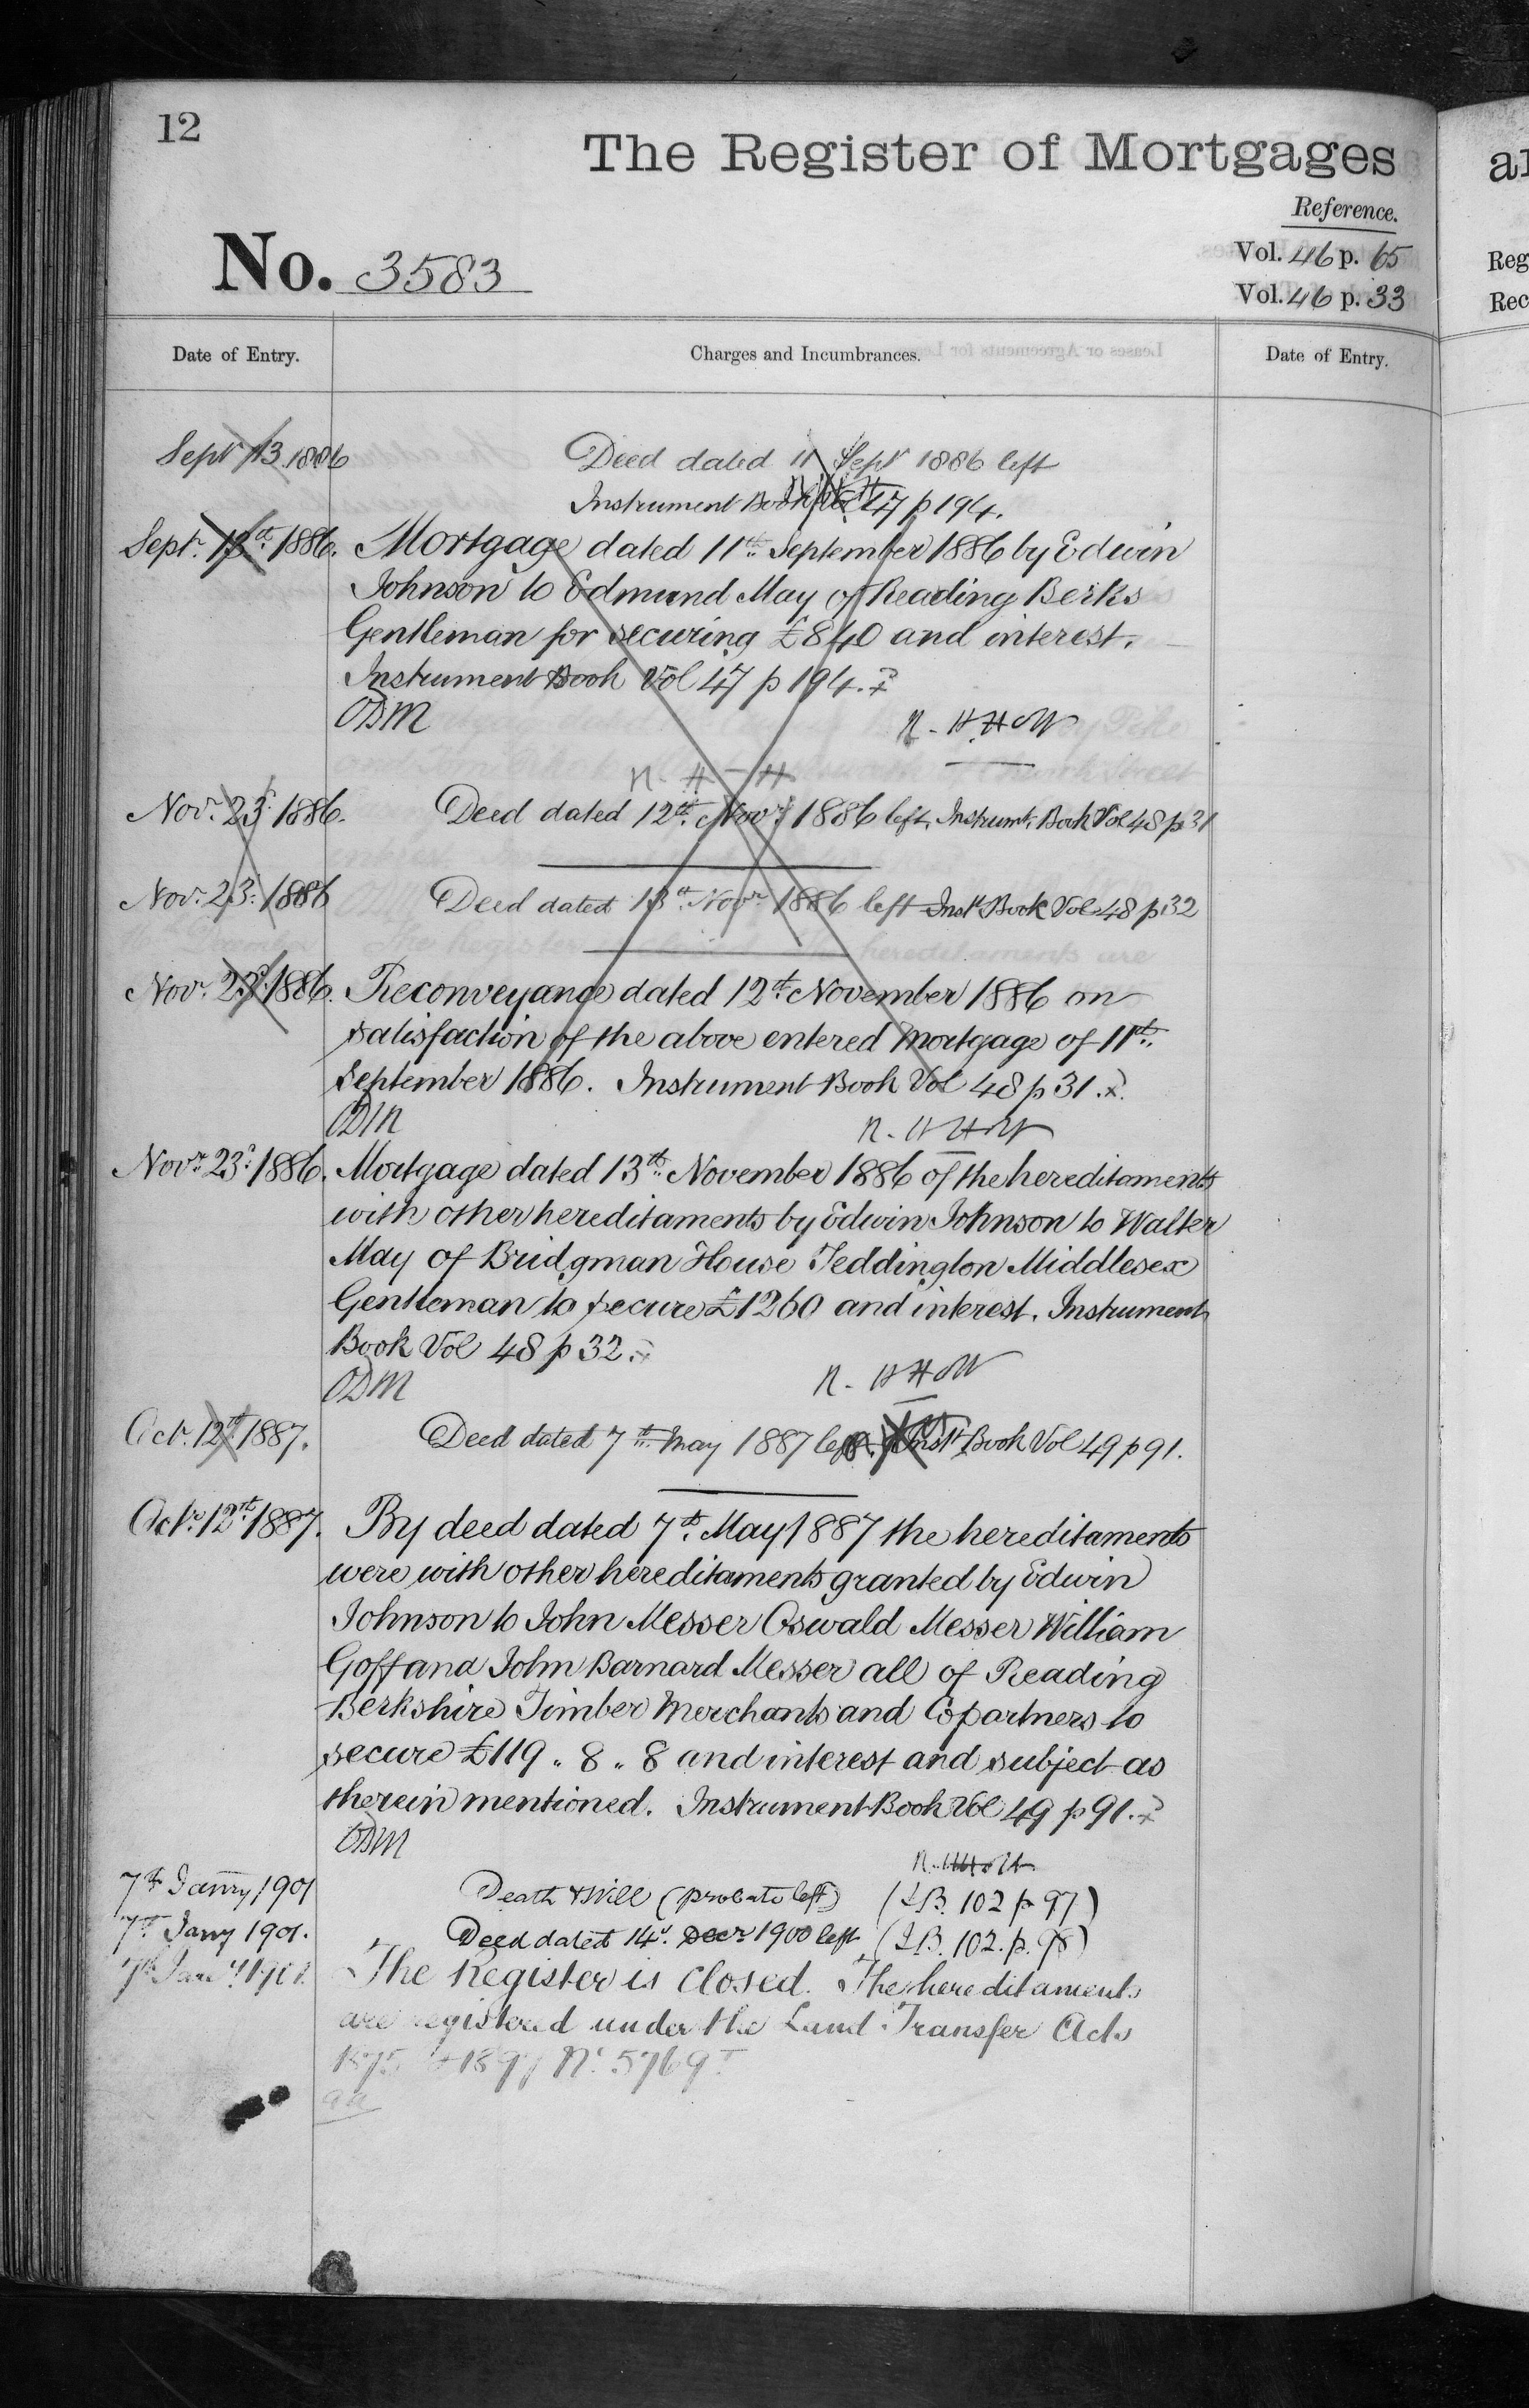 12
The Register of Mortgages
Reference.
No. 3583
Vol. 46 p. 65
Vol. 46 p. 33
Date of Entry.
Charges and Incumbrances.
Date of Entry.
Sepr 13. 1886
Deed dated 11 Sepr 1886 left
Instrument Book Vol 47 p 194.
Septr. 13th. 1886. Mortgage dated 11th. September 1886 by Edwin
Johnson to Edmund May of Reading Berks
Gentleman for securing £840 and interest.
Instrument Book Vol 47 p 194.
ODM
Novr. 23d. 1886. Deed dated 12th. Novr. 1886 left. Instrumt. Book Vol 48 p 31
Novr. 23. 1886 Deed dated 13th. Novr. 1886 left Inst Book Vol 48 p 32
Novr. 23d. 1886. Reconveyance dated 12th. November 1886 on
satisfaction of the above entered Mortgage of 11th.
September 1886. Instrument Book Vol 48 p 31.
ODM
Novr. 23d. 1886. Mortgage dated 13th. November 1886 of the hereditaments
with other hereditaments by Edwin Johnson to Walter
May of Bridgman House Teddington Middlesex
Gentleman to secure £1260 and interest. Instrument
Book Vol 48 p 32.
ODM
Octr. 12th. 1887. Deed dated 7th. May 1887 left. Inst Book Vol 49 p 91.
Octr. 12th 1887. By deed dated 7th. May 1887 the hereditaments
were with other hereditaments granted by Edwin
Johnson to John Messer Oswald Messer William
Goff and John Barnard Messer all of Reading
Berkshire Timber Merchants and Copartners to
secure £119 " 8 " 8 and interest and subject as
therein mentioned. Instrument Book Vol 49 p 91.
ODM
7th Janry 1901 Death & Will (probate left) (I.B. 102 p 97)
7th Jany 1901. Deed dated 14th. Decr 1900 left (I.B. 102. p. 98)
7th Jany 1901. The Register is Closed. The hereditaments
are registered under the Land Transfer Acts
1875 & 1897 No. 5769
al
Reg
Rec